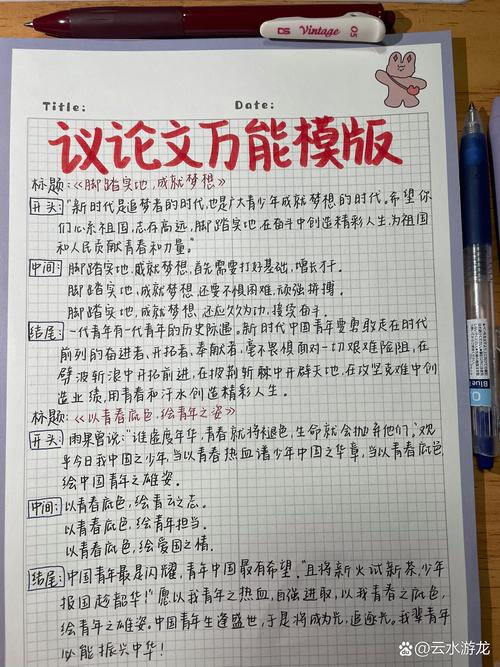 DS Vintage 05
Title: Date:
议论文万能模版
标题:《脚踏实地,成就梦想》
开头:"新时代是追梦者的时代,也是广大青少年成就梦想的时代。希望你
们心系祖国,志存高远,脚踏实地,在奋斗中创造精彩人生,为祖国
和人民贡献青春和力量。"
中间:脚踏实地,成就梦想,首先需要打好基础,增长才干。
脚踏实地,成就梦想,还要不惧困难,顽强拼搏。
脚踏实地,成就梦想,还应久久为功,接续奋斗。
结尾:一代青年有一代青年的历史际遇。新时代中国青年要勇敢走在时代
前列的奋进者、开拓者、奉献者,毫不畏惧面对一切艰难险阻,在
劈波斩浪中开拓前进,在披荆斩棘中开辟天地,在攻坚克难中创
造业绩,用青春和汗水创造精彩人生。
标题:《以青春底色,绘青年之姿》
开头:雨果曾说:"谁虚度年华,青春就将褪色,生命就会抛弃他们。"观
乎今日我中国之少年,当以青春热血谱少年中国之华章,当以青春底色
绘中国青年之雄姿。
中间:以青春底色,绘青云之志。
以青春底色,绘青年担当。
以青春底色,绘爱国之情。
结尾:中国青年最是闪耀,青年中国最有希望。"且将新火试新茶,少年
报国趁韶华!"愿以我青年之热血,自强进取,以我青春之底色,
绘青年之雄姿。中国青年生逢盛世,于是将成为光,追逐光。我辈青年
必能振兴中华!
百家号/云水游龙